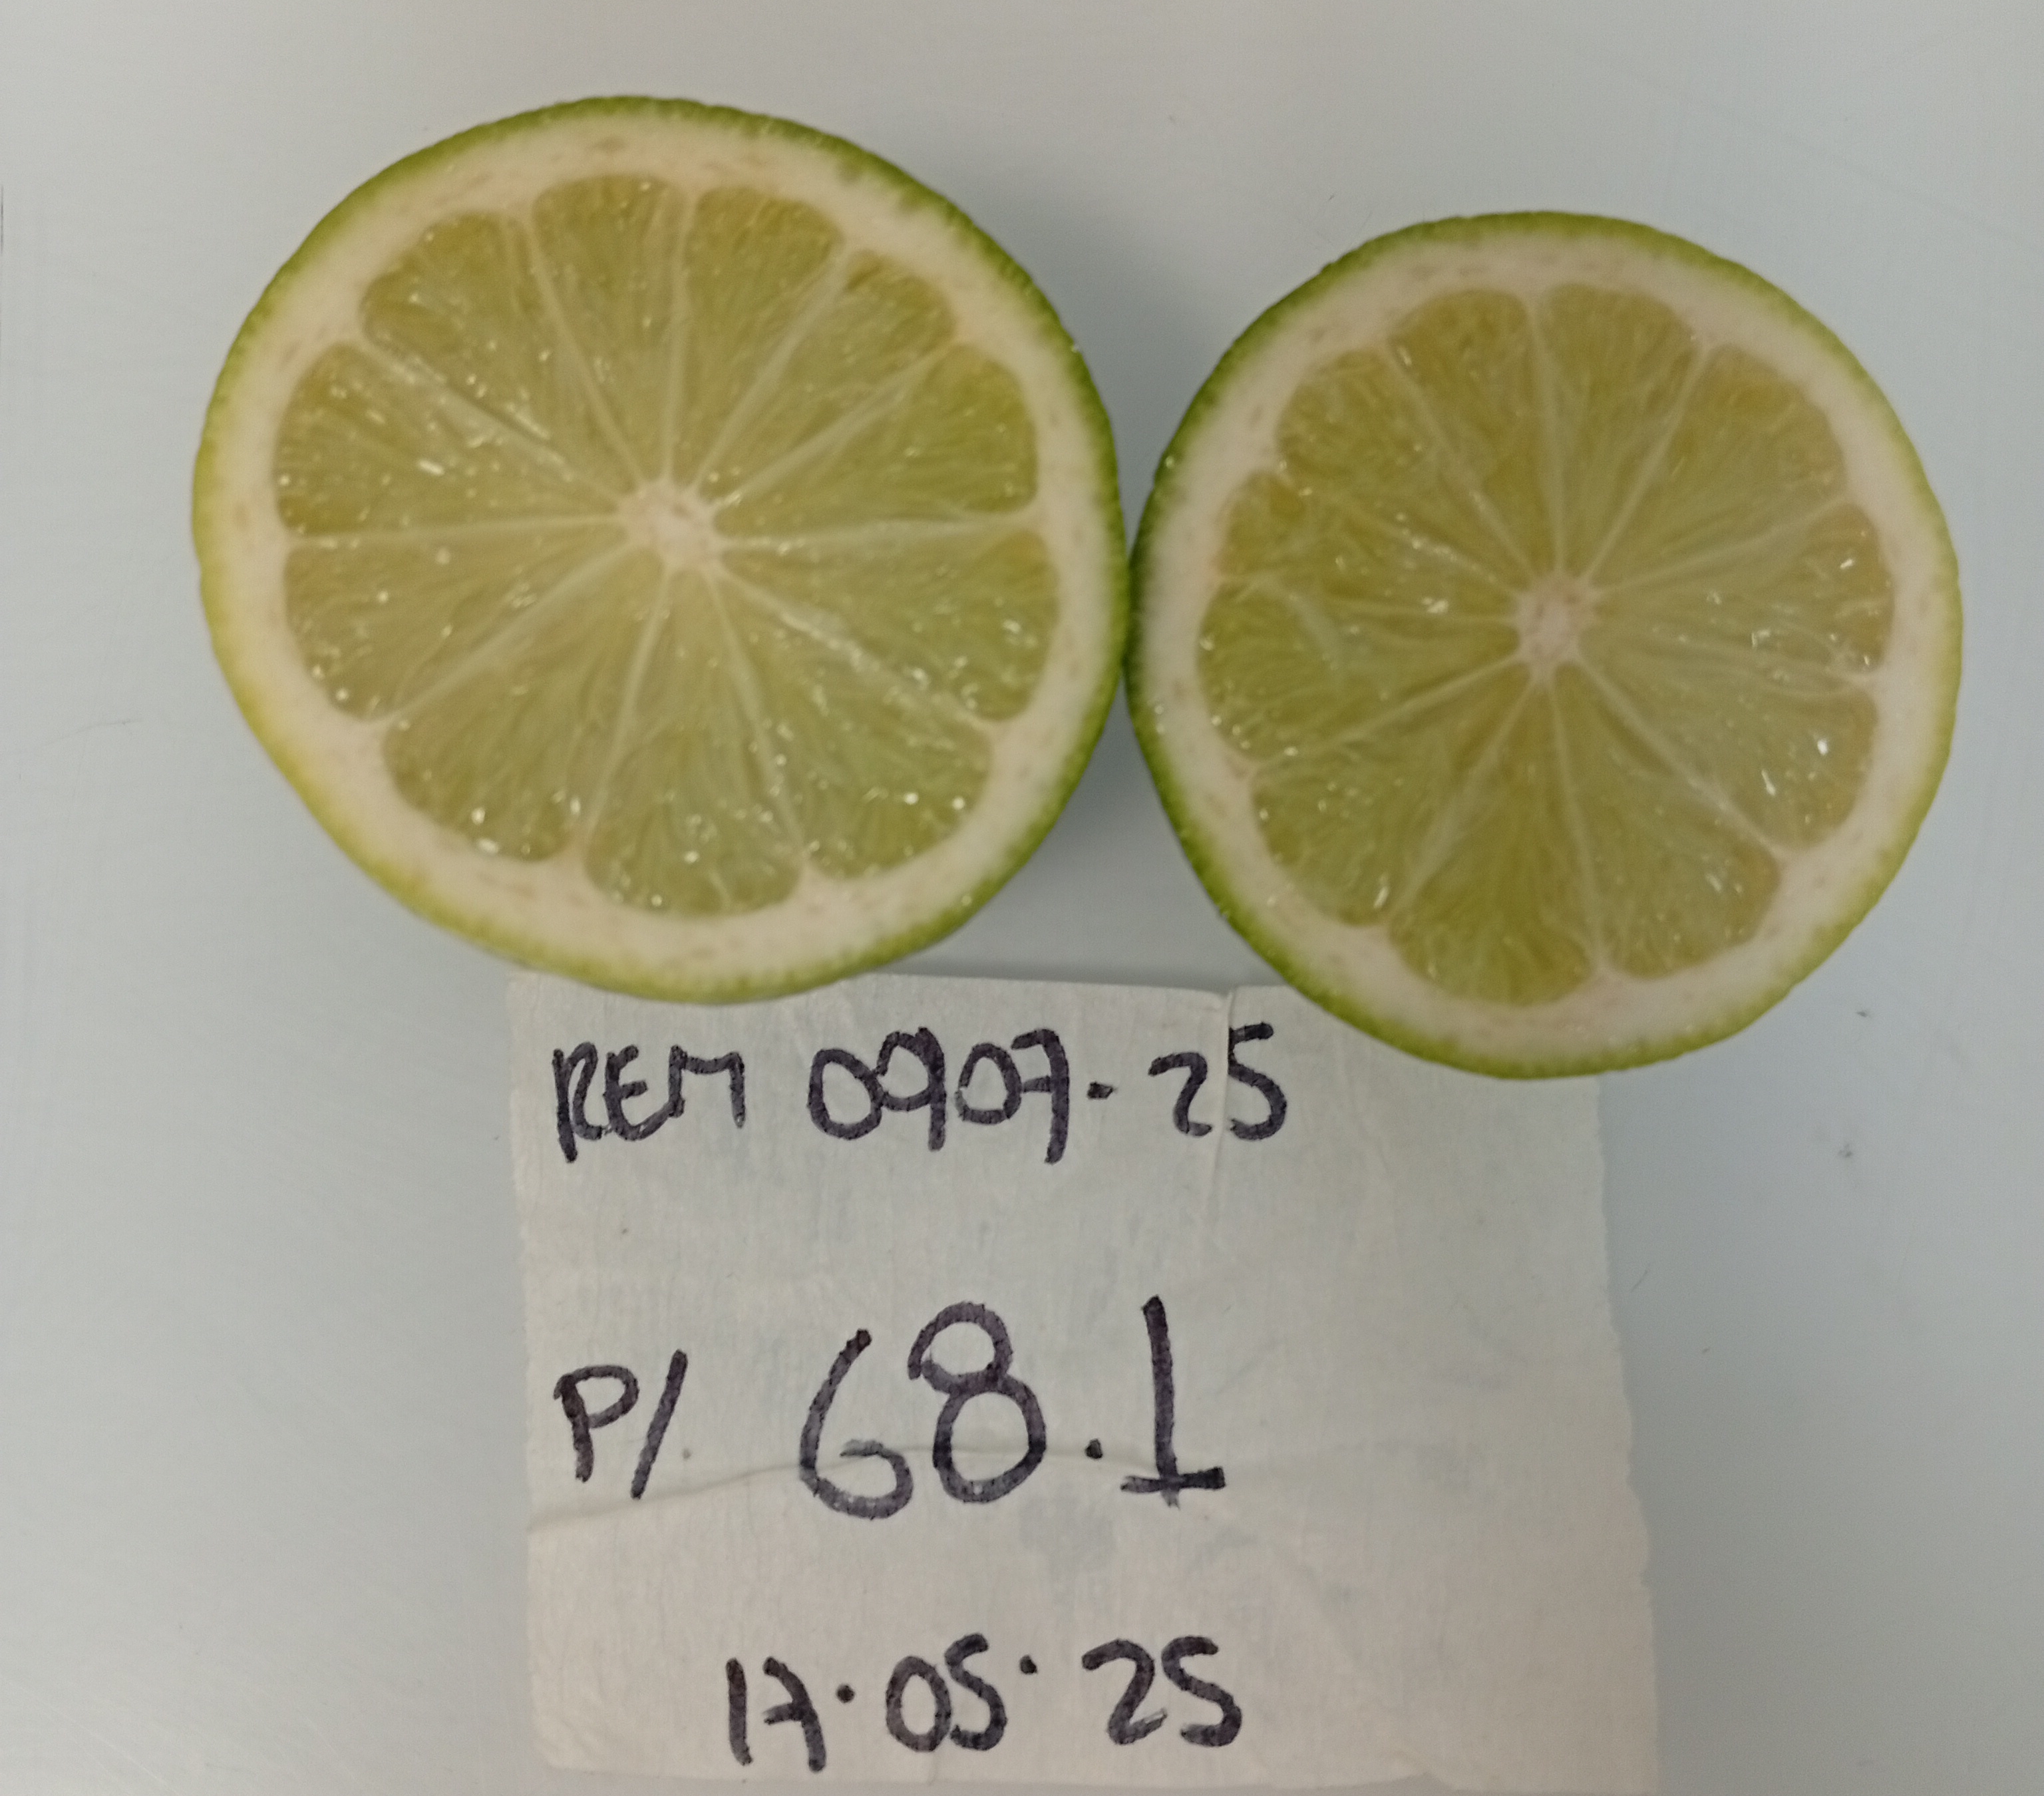 REM 0907-25
P/ 68.1
17.05.25